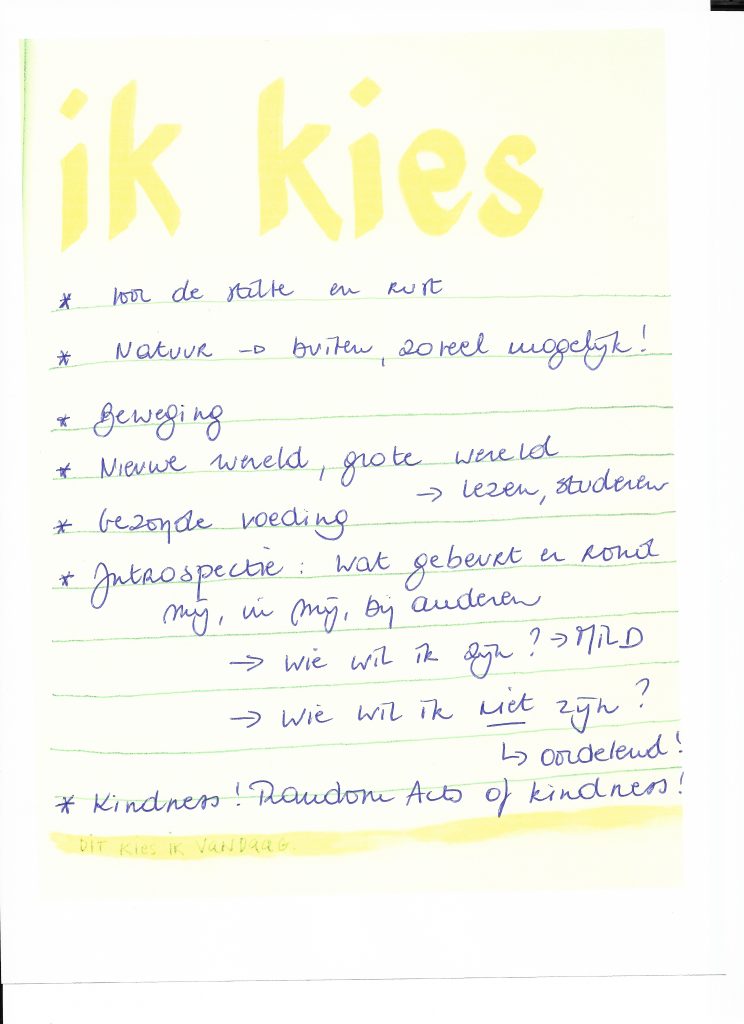 ik kies
* voor de stilte en rust
* Natuur → buiten, zoveel mogelijk!
* Beweging
* Nieuwe wereld, grote wereld
→ lezen, studeren
* Gezonde voeding
* Introspectie: wat gebeurt er rond
mij, in mij, bij anderen
→ wie wil ik zijn? → MILD
→ wie wil ik niet zijn?
↳ oordelend!
* Kindness! Random Acts of kindness!
DIT Kies ik VANDAAG.